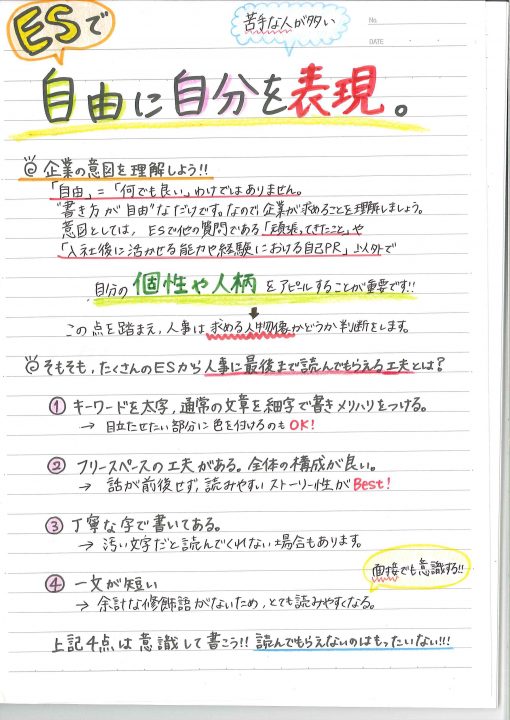 ESで
苦手な人が多い
No.
DATE
自由に自分を表現。
企業の意図を理解しよう!!
「自由」=「何でも良い」わけではありません。
"書き方が自由"なだけです。なので企業が求めることを理解しましょう。
意図としては、ESで他の質問である「頑張ってきたこと」や
「入社後に活かせる能力や経験における自己PR」以外で
自分の個性や人柄をアピールすることが重要です!!
↓
この点を踏まえ、人事は求める人物像かどうか判断をします。
そもそも、たくさんのESから人事に最後まで読んでもらえる工夫とは?
① キーワードを太字,通常の文章を細字で書きメリハリをつける。
→ 目立たせたい部分に色を付けるのもOK!
② フリースペースの工夫がある。全体の構成が良い。
→ 話が前後せず,読みやすいストーリー性がBest!
③ 丁寧な字で書いてある。
→ 汚い文字だと読んでくれない場合もあります。
面接でも意識する!!
④ 一文が短い
→ 余計な修飾語がないため,とても読みやすくなる。
上記4点は意識して書こう!!読んでもらえないのはもったいない!!!